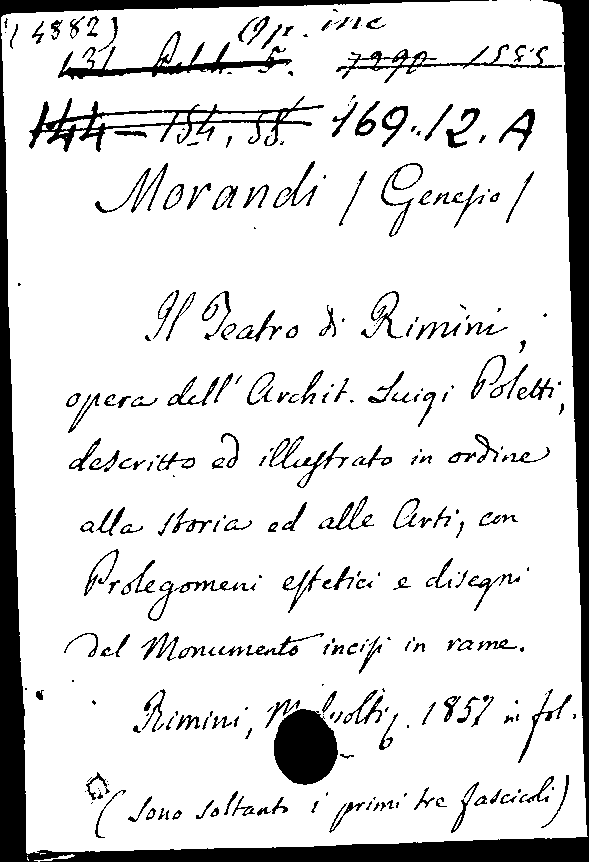 (4882) Op. inc
131 5. 7290 1555
144 - 154, 55. 169.. 12. A
Morandi / Genesio /
Il Teatro di Rimini,
opera dell' Archit. Luigi Poletti,
descritto ed illustrato in ordine
alla storia ed alle Arti, con
Prolegomeni estetici e disegni
del Monumento incisi in rame.
Rimini, 1857 in fol.
(sono soltanto i primi tre fascicoli)